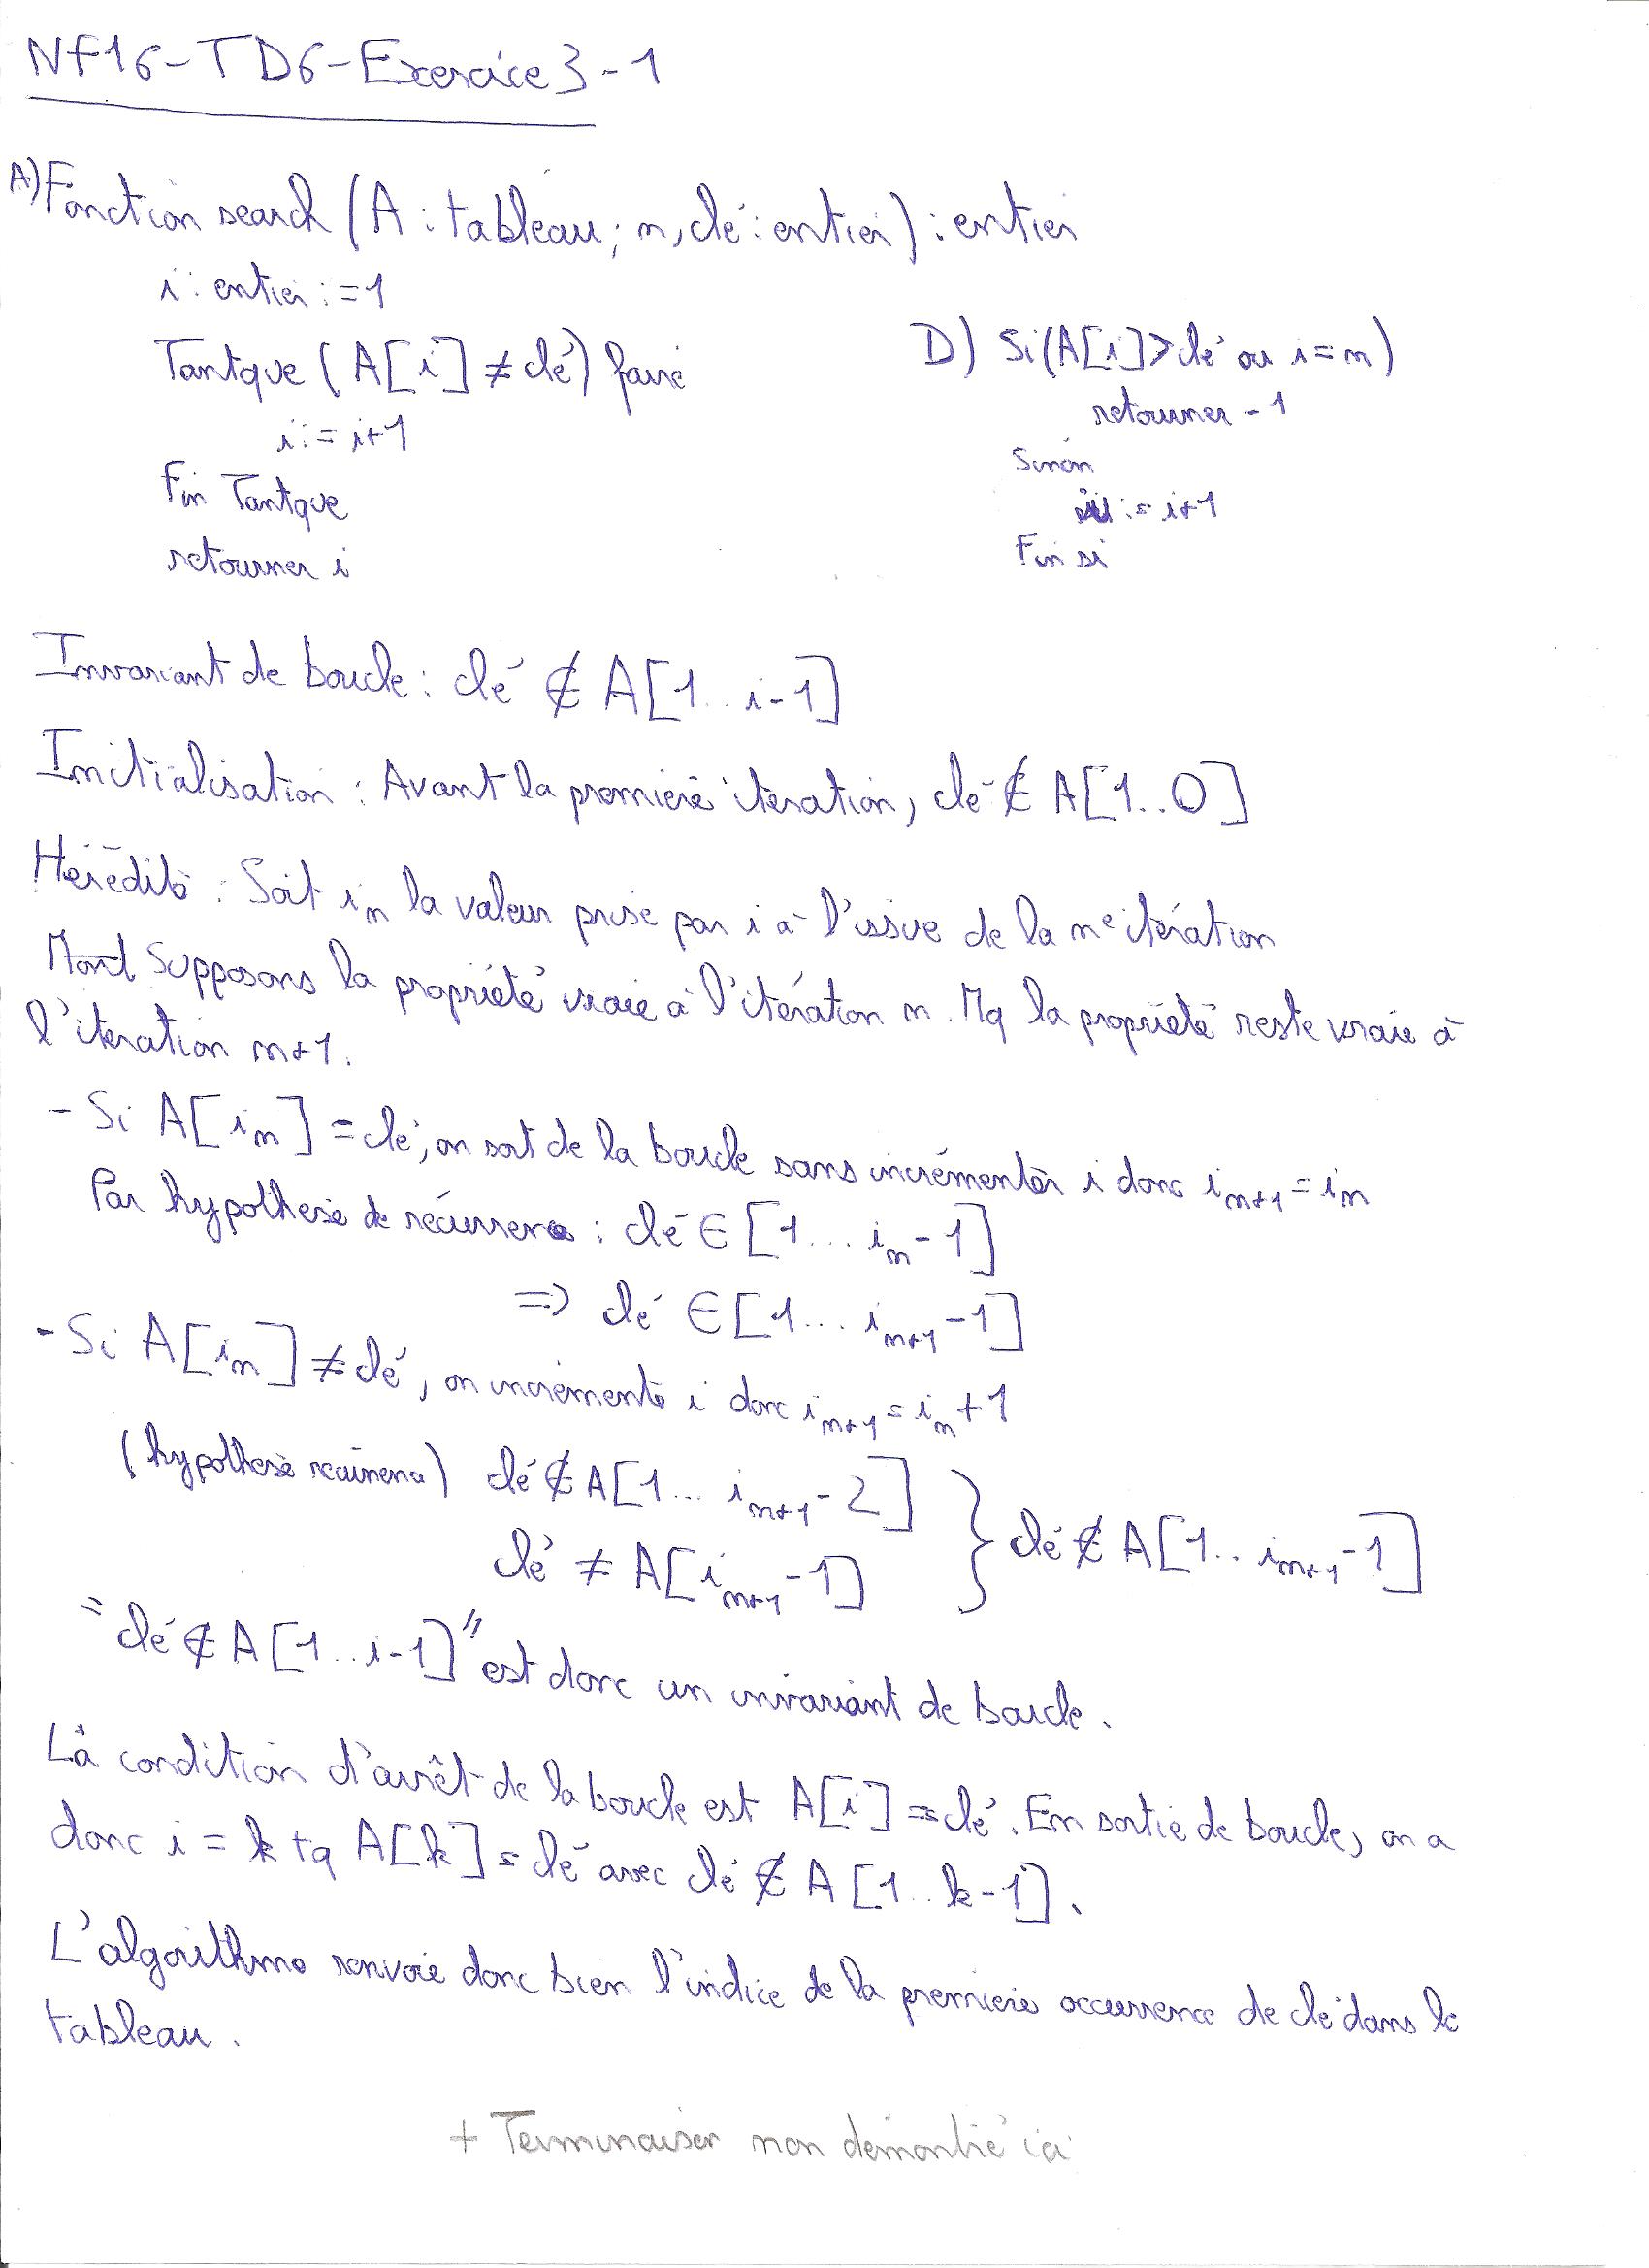 NF16-TD6-Exercice 3-1
A) Fonction search (A : tableau ; n, clé : entier) : entier
i : entier := 1
Tantque (A[i] ≠ clé) faire
i := i+1
Fin Tantque
retourner i
D) Si (A[i] > clé ou i = n)
retourner -1
Sinon
i := i+1
Fin si
Invariant de boucle : clé ∉ A[1..i-1]
Initialisation : Avant la première itération, clé ∉ A[1..0]
Hérédité : Soit iₙ la valeur prise par i à l'issue de la nᵉ itération
Supposons la propriété vraie à l'itération n. Mq la propriété reste vraie à
l'itération n+1.
- Si A[iₙ] = clé, on sort de la boucle sans incrémenter i donc iₙ₊₁ = iₙ
Par hypothèse de récurrence : clé ∈ [1... iₙ-1]
=> clé ∈ [1... iₙ₊₁-1]
- Si A[iₙ] ≠ clé, on incrémente i donc iₙ₊₁ = iₙ+1
(hypothèse récurrence) clé ∉ A[1... iₙ₊₁-2]
clé ≠ A[iₙ₊₁-1]
} clé ∉ A[1.. iₙ₊₁-1]
"clé ∉ A[1..i-1]" est donc un invariant de boucle.
La condition d'arrêt de la boucle est A[i] = clé. En sortie de boucle, on a
donc i = k tq A[k] = clé avec clé ∉ A[1..k-1].
L'algorithme renvoie donc bien l'indice de la première occurrence de clé dans le
tableau.
+ Terminaison non démontré ici